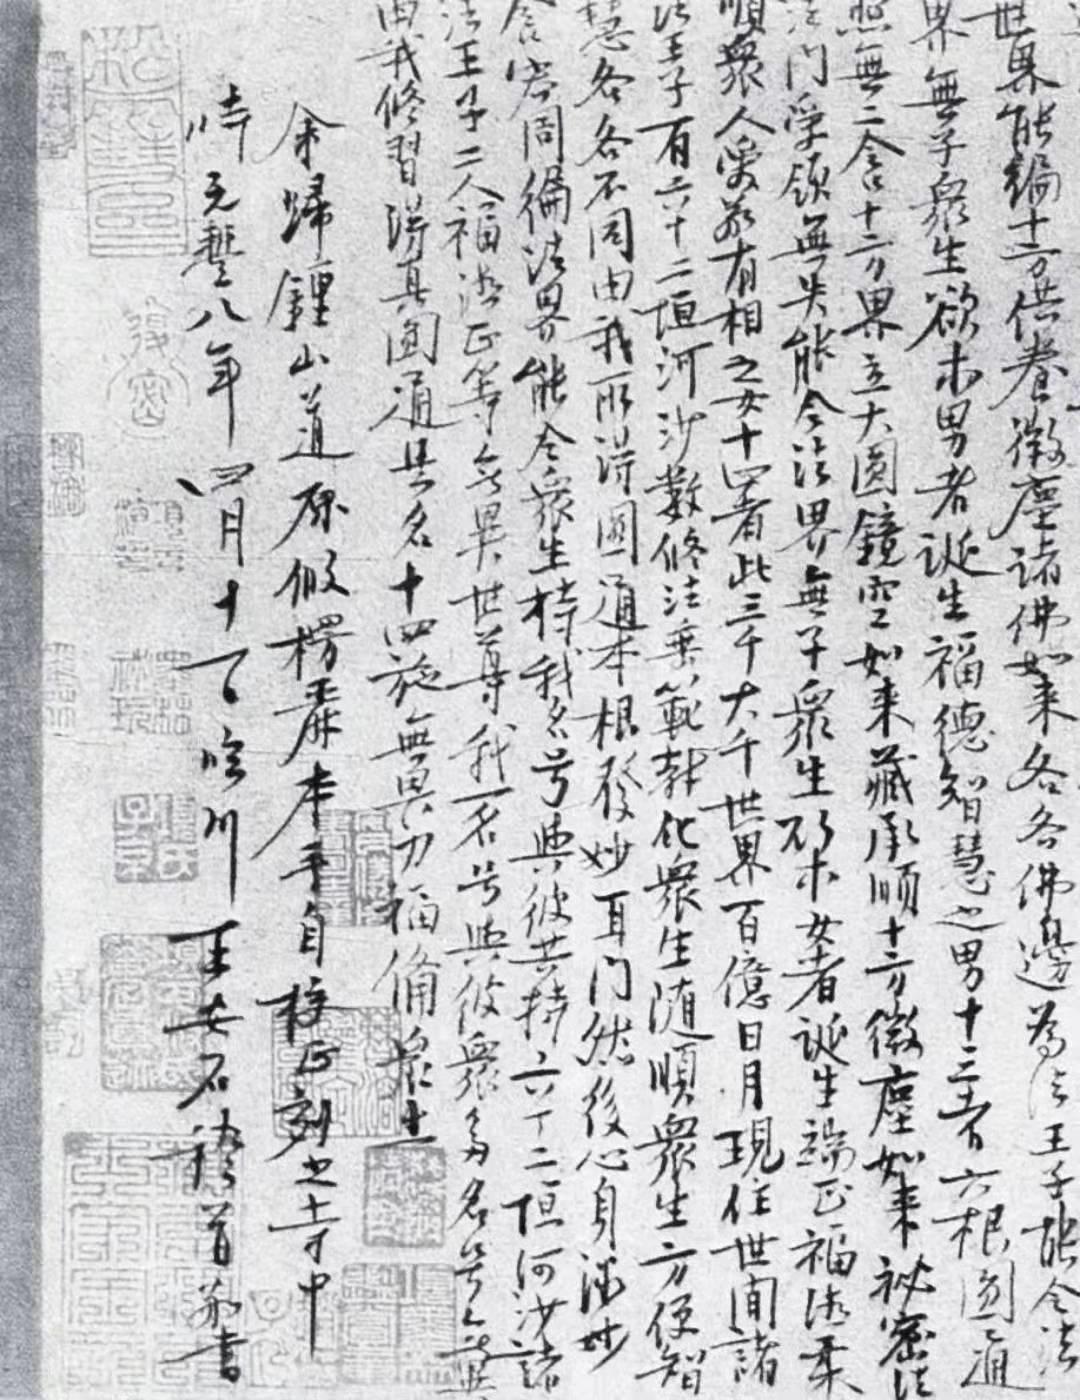 世界能徧十方供養微塵諸佛如來各各佛邊為法王子能令法
界無子衆生欲求男者誕生福德智慧之男十三者六根圓通
照無二含十方界立大圓鏡空如來藏承順十方微塵如來祕密法
法門受領無失能令法界無子衆生欲求女者誕生端正福德柔
順衆人愛敬有相之女十四者此三千大千世界百億日月現住世間諸
法王子有六十二恒河沙數修法垂範教化衆生随順衆生方便智
慧各各不同由我所得圓通本根發妙耳門然後心身微妙
含容周徧法界能令衆生持我名号與彼共持六十二恒河沙諸
法王子二人福德正等無異世尊我一名号與彼衆多名号無異
由我修習得真圓通是名十四施無畏力福備衆生
余歸鍾山道原假楞嚴本手自校正刻之寺中
時元豐八年四月十一日臨川王安石稽首敬書